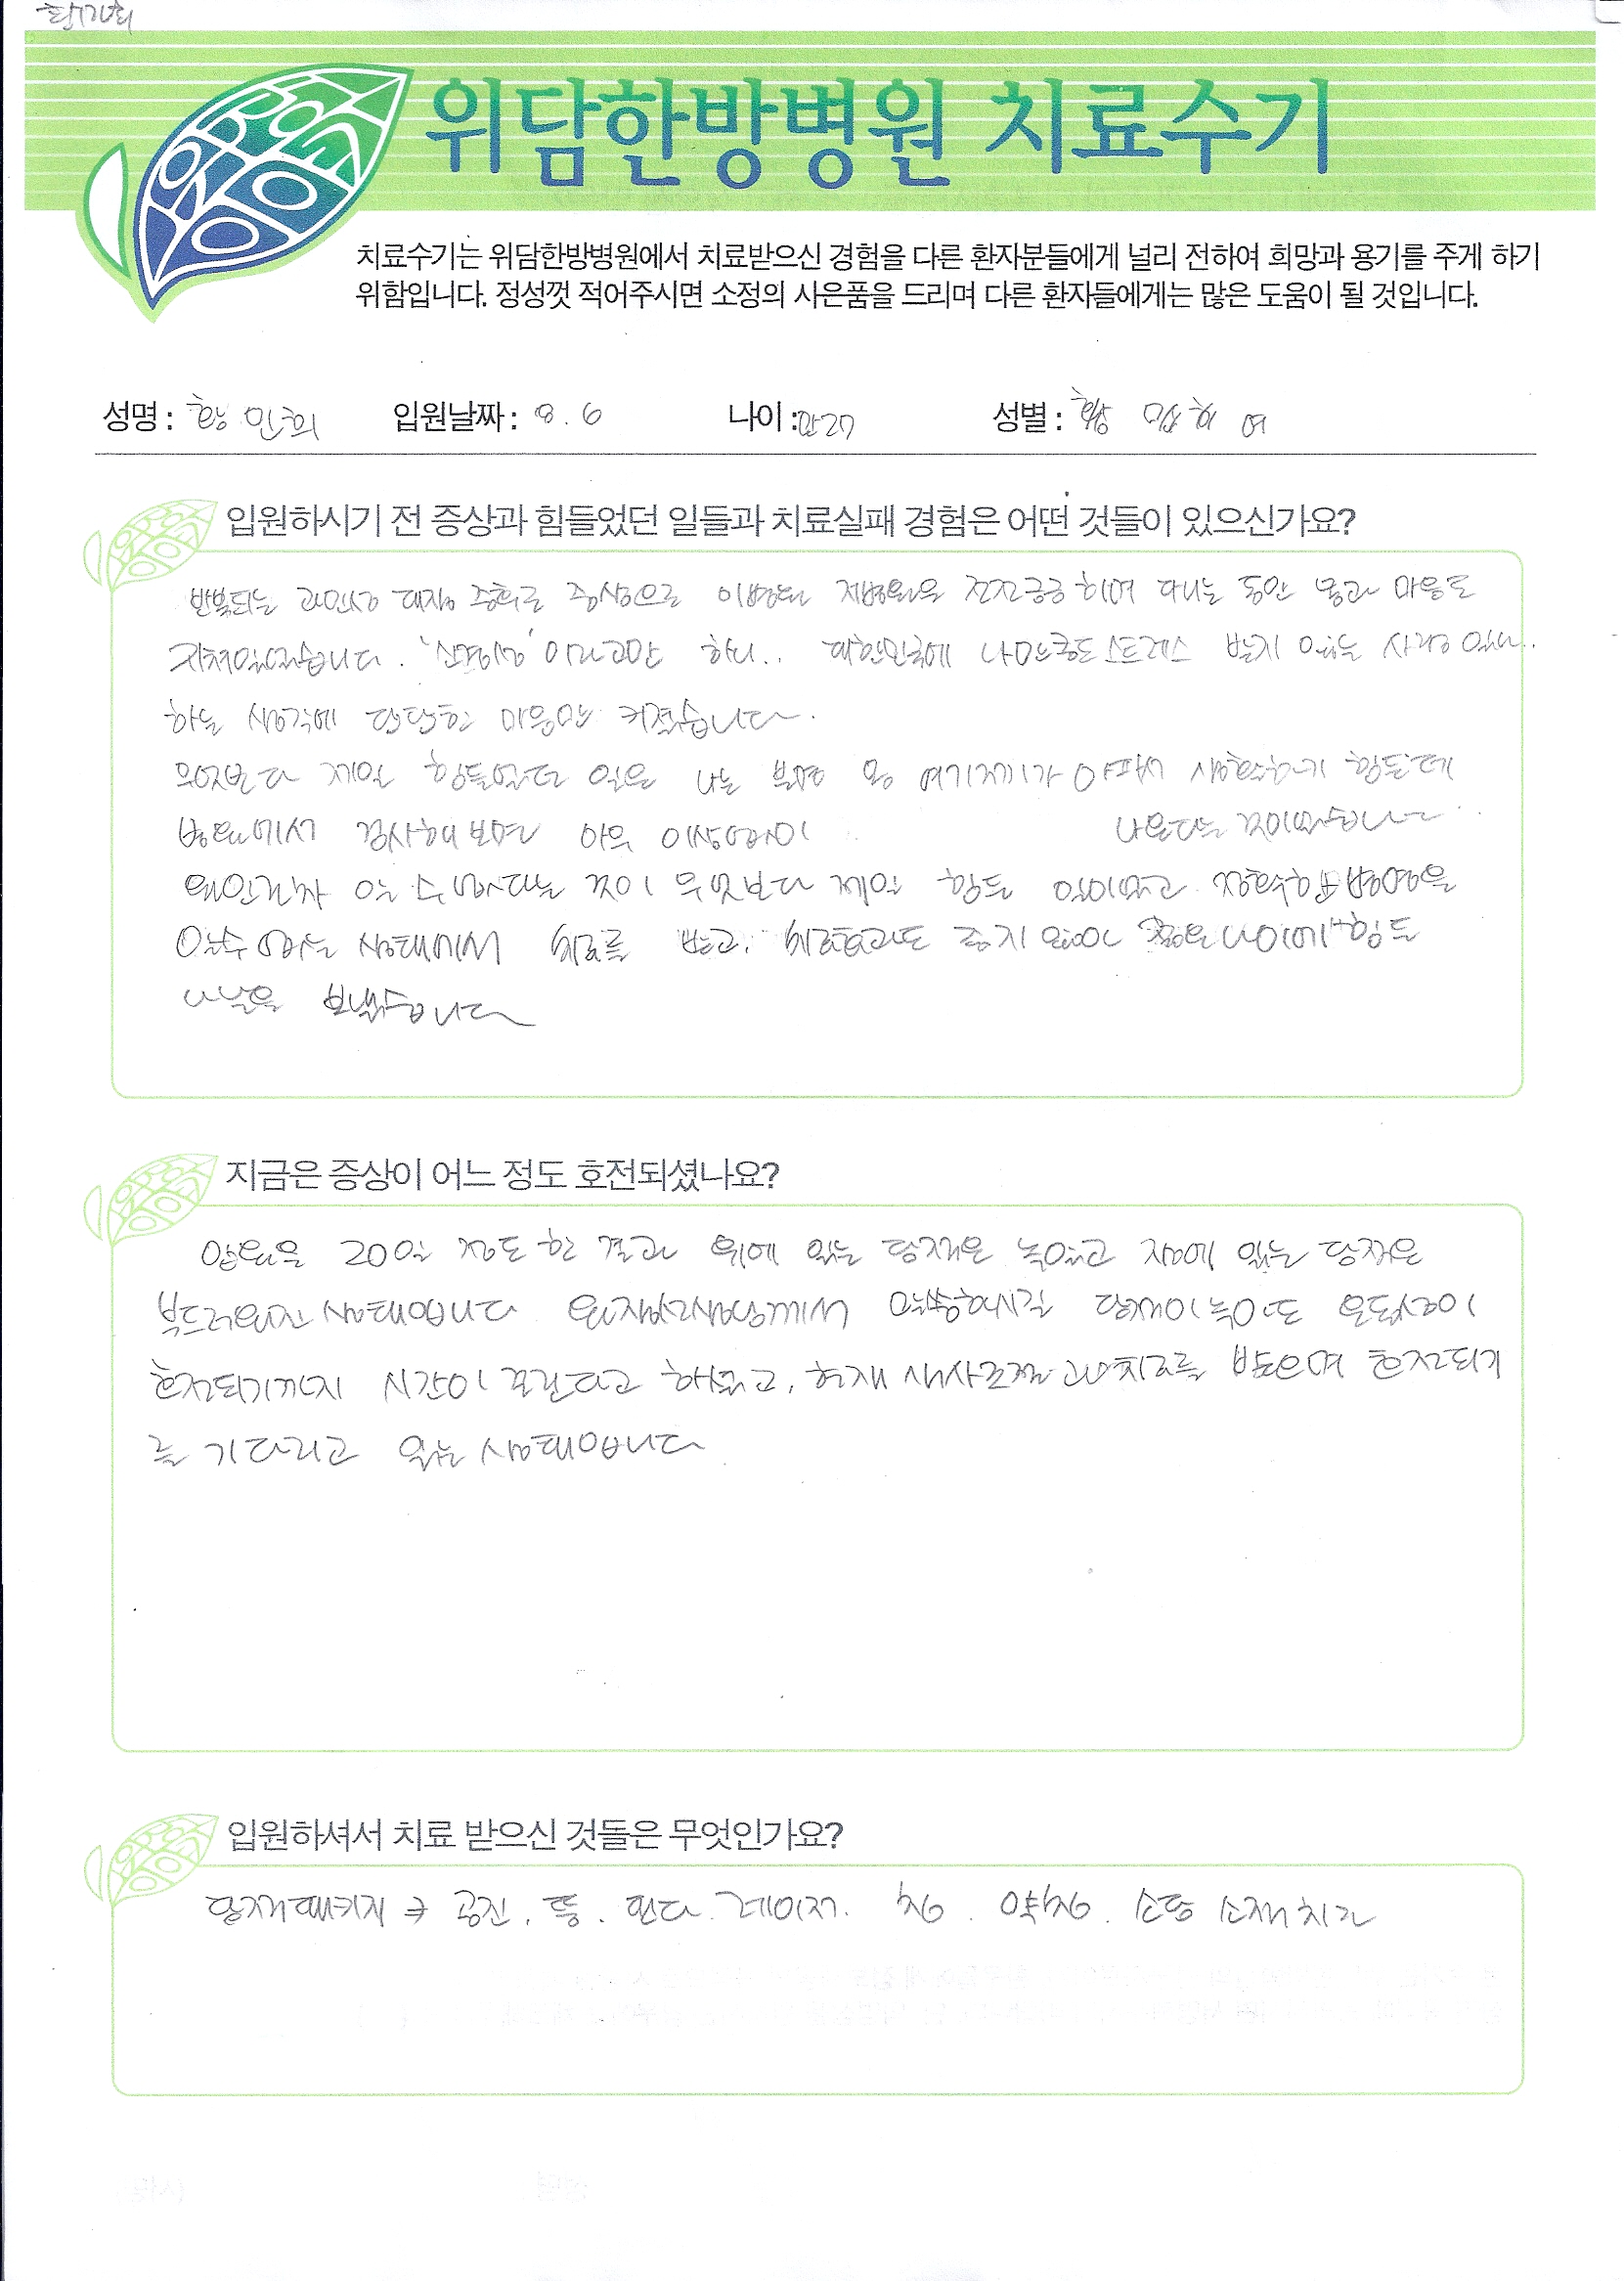 위담한방병원 치료수기
치료수기는 위담한방병원에서 치료받으신 경험을 다른 환자분들에게 널리 전하여 희망과 용기를 주게 하기
위함입니다. 정성껏 적어주시면 소정의 사은품을 드리며 다른 환자들에게는 많은 도움이 될 것입니다.
성명 : 황민희 입원날짜 : 8. 6 나이 : 만27 성별 : 여
입원하시기 전 증상과 힘들었던 일들과 치료실패 경험은 어떤 것들이 있으신가요?
반복되는 과민성 대장 증후군 증상으로 이병원 저병원을 전전긍긍하며 다니는 동안 몸과 마음도
지쳐있었습니다. '신경성'이라고만 하니.. 대한민국에 나만큼도 스트레스 받지 않는 사람 있나..
하는 생각에 답답한 마음만 커졌습니다.
무엇보다 제일 힘들었던 일은 나는 몸 여기저기가 아파서 힘든데
병원에서 검사해보면 아무 이상없이 나온다는 것이었습니다..
왜인건지 알 수 없다는 것이 무엇보다 제일 힘든 일이었고
알수없는 상태에서 치료를 받고, 치료효과도 좋지 않아 젊은 나이에 힘든
나날을 보냈습니다
지금은 증상이 어느 정도 호전되셨나요?
입원을 20일 정도 한 결과 위에 있는 담적은 녹았고 장에 있는 담적은
부드러워진 상태입니다 원장선생님께서 말씀하시길 담적이 녹아도 운동성이
호전되기까지 시간이 걸린다고 하셨고, 현재 치료를 받으며 호전되기
를 기다리고 있는 상태입니다
입원하셔서 치료 받으신 것들은 무엇인가요?
담적패키지 → 공진, 뜸, 핀다, 레이저, 침, 약침, 소적치료